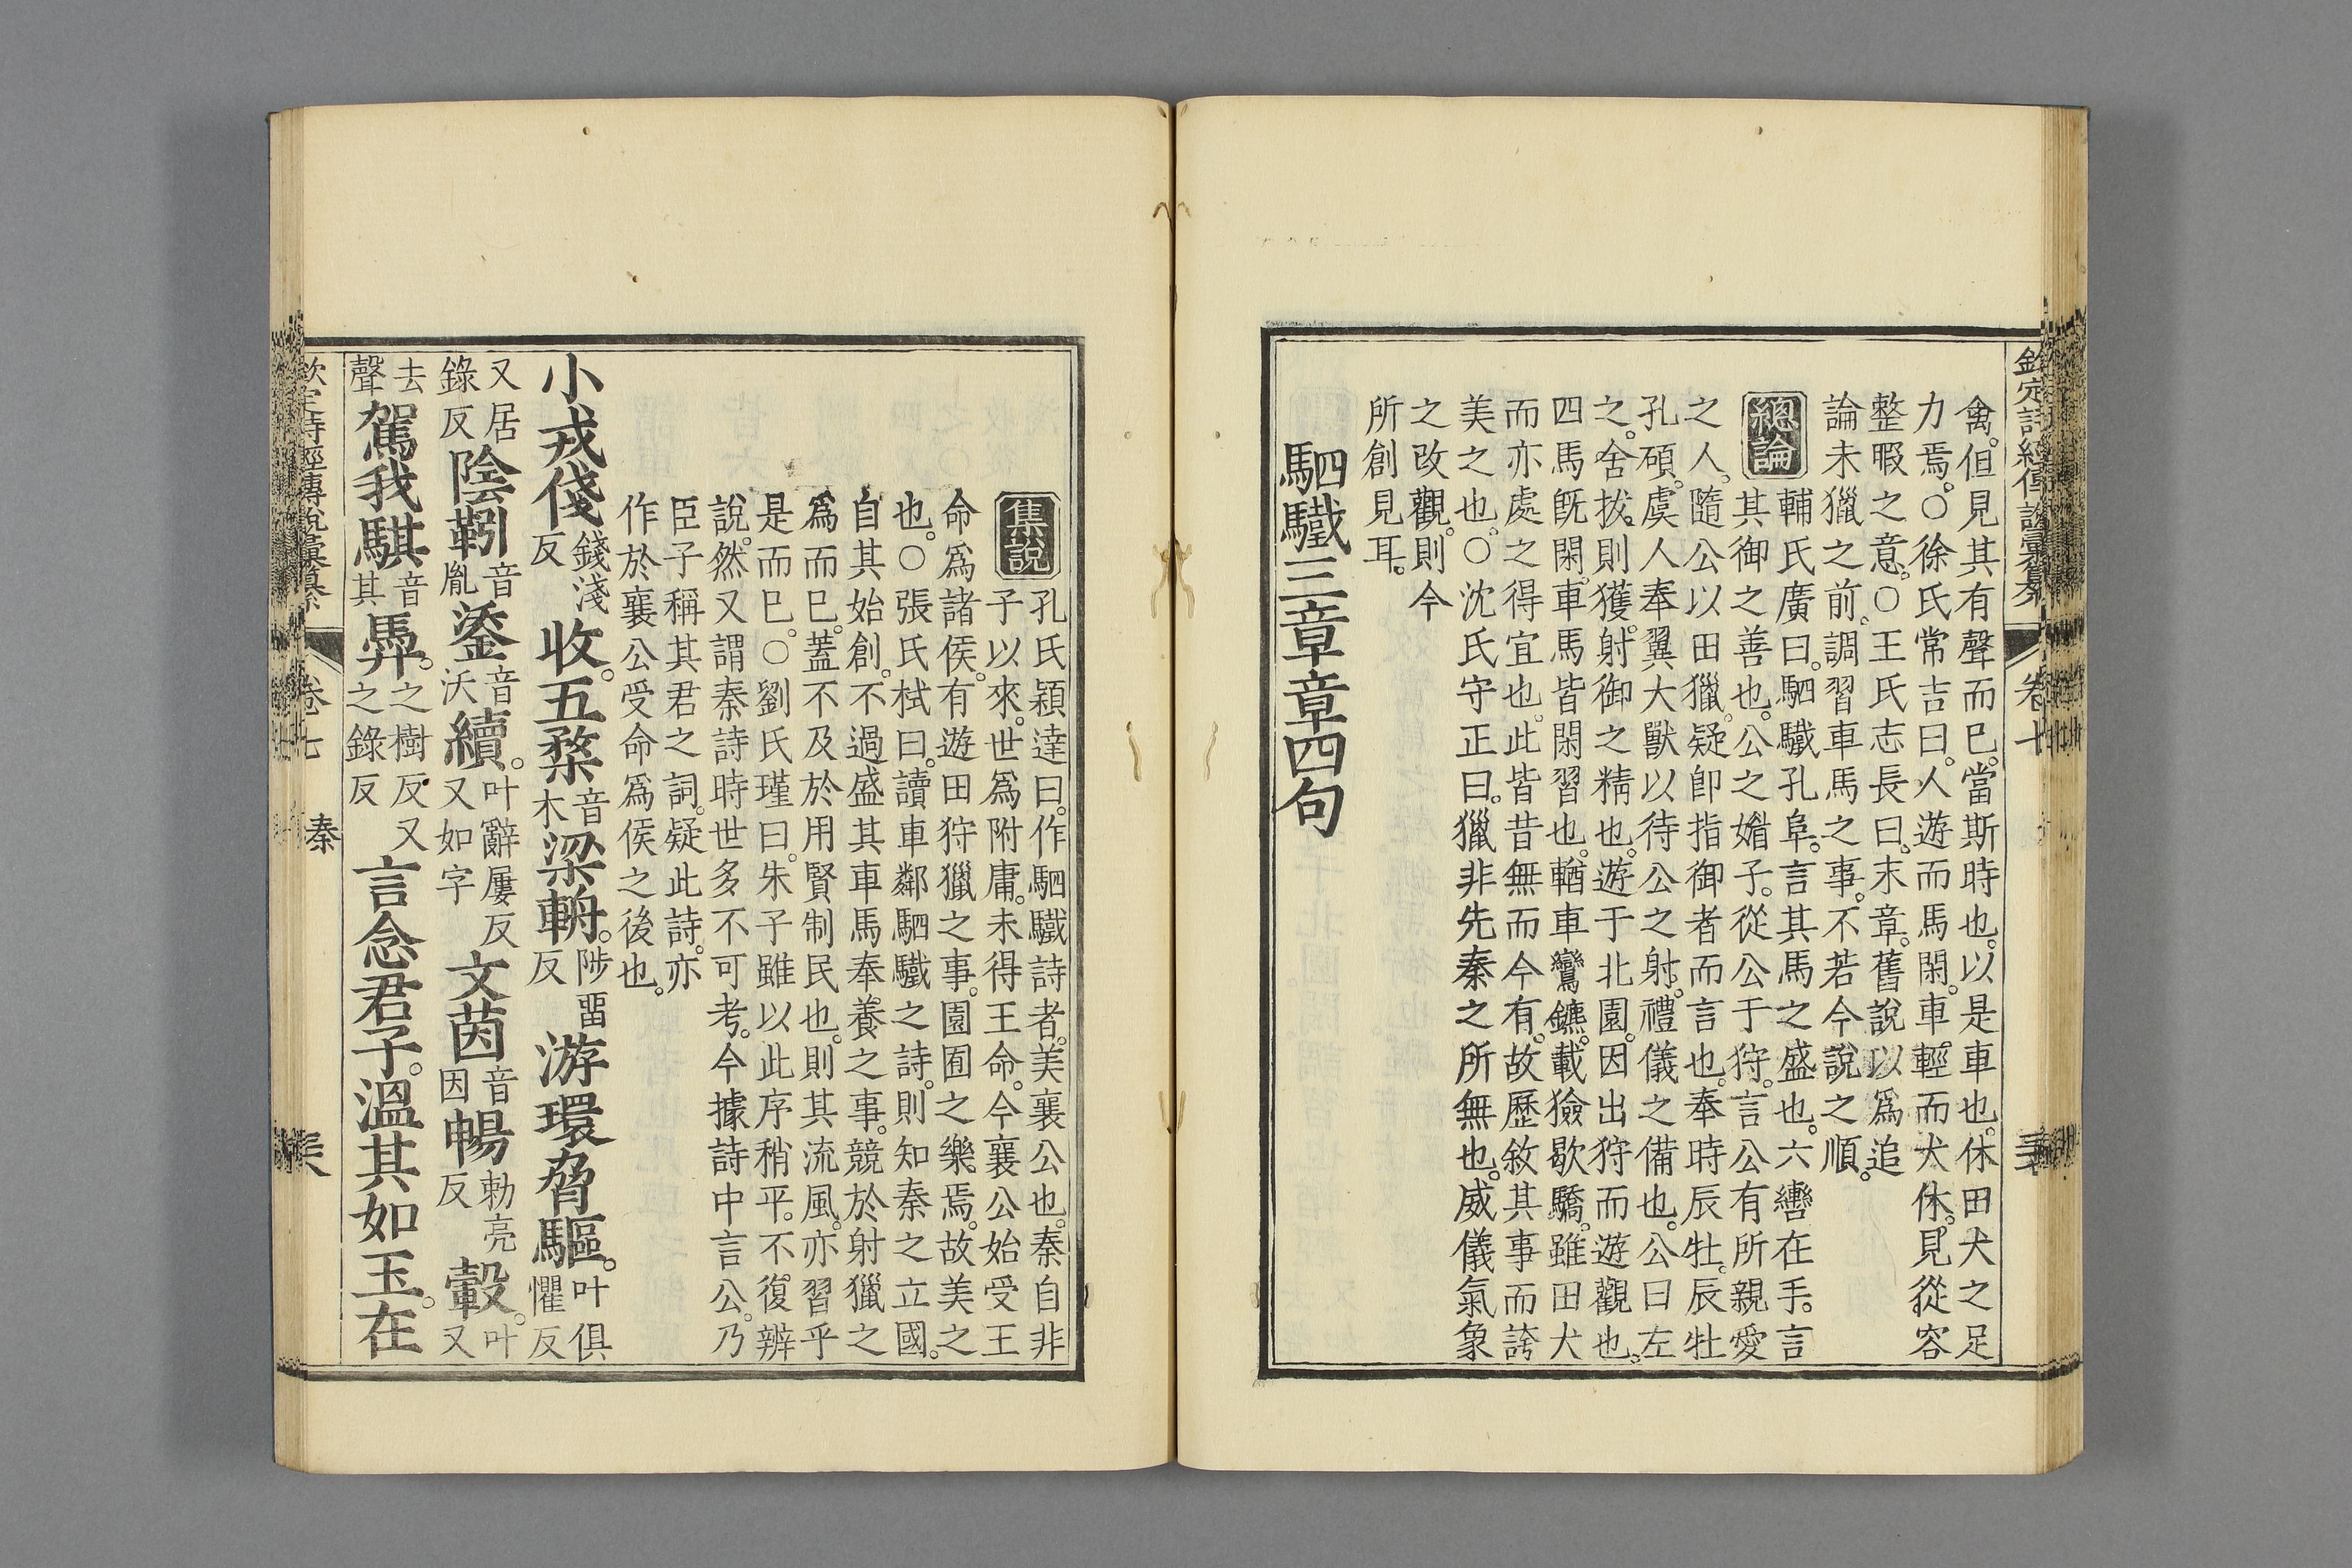 欽定詩經傳說彙纂 卷七
禽。但見其有聲而已。當斯時也。以是車也。休田犬之足
力焉。○徐氏常吉曰。人遊而馬閑。車輕而犬休。見從容
整暇之意。○王氏志長曰。末章。舊說以爲追
論未獵之前。調習車馬之事。不若今說之順。
總論 輔氏廣曰。駟驖孔阜。言其馬之盛也。六轡在手。言
其御之善也。公之媚子。從公于狩。言公有所親愛
之人。隨公以田獵。疑即指御者而言也。奉時辰牡。辰牡
孔碩。虞人奉翼大獸以待公之射。禮儀之備也。公曰左
之。舍拔。則獲。射御之精也。遊于北園。因出狩而遊觀也。
四馬旣閑。車馬皆閑習也。輶車鸞鑣。載獫歇驕。雖田犬
而亦處之得宜也。此皆昔無而今有。故歷敘其事而誇
美之也。○沈氏守正曰。獵非先秦之所無也。威儀氣象
之改觀。則今
所創見耳。
駟驖三章章四句
集說 孔氏穎達曰。作駟驖詩者。美襄公也。秦自非
子以來。世爲附庸。未得王命。今襄公始受王
命爲諸侯。有遊田狩獵之事。園囿之樂焉。故美之
也。○張氏栻曰。讀車鄰駟驖之詩。則知秦之立國。
自其始創。不過盛其車馬奉養之事。競於射獵之
爲而已。蓋不及於用賢制民也。則其流風。亦習乎
是而已。○劉氏瑾曰。朱子雖以此序稍平。不復辨
說。然又謂秦詩時世多不可考。今據詩中言公。乃
臣子稱其君之詞。疑此詩。亦
作於襄公受命爲侯之後也。
小戎俴錢淺反收。五楘音木梁輈。陟畱反游環脅驅。叶俱懼反
又居錄反陰靷音胤鋈音沃續。叶辭屢反又如字文茵音因暢敕亮反轂。叶又
去聲駕我騏音其馵。之樹反又之錄反言念君子。溫其如玉。在
欽定詩經傳說彙纂 卷七 秦